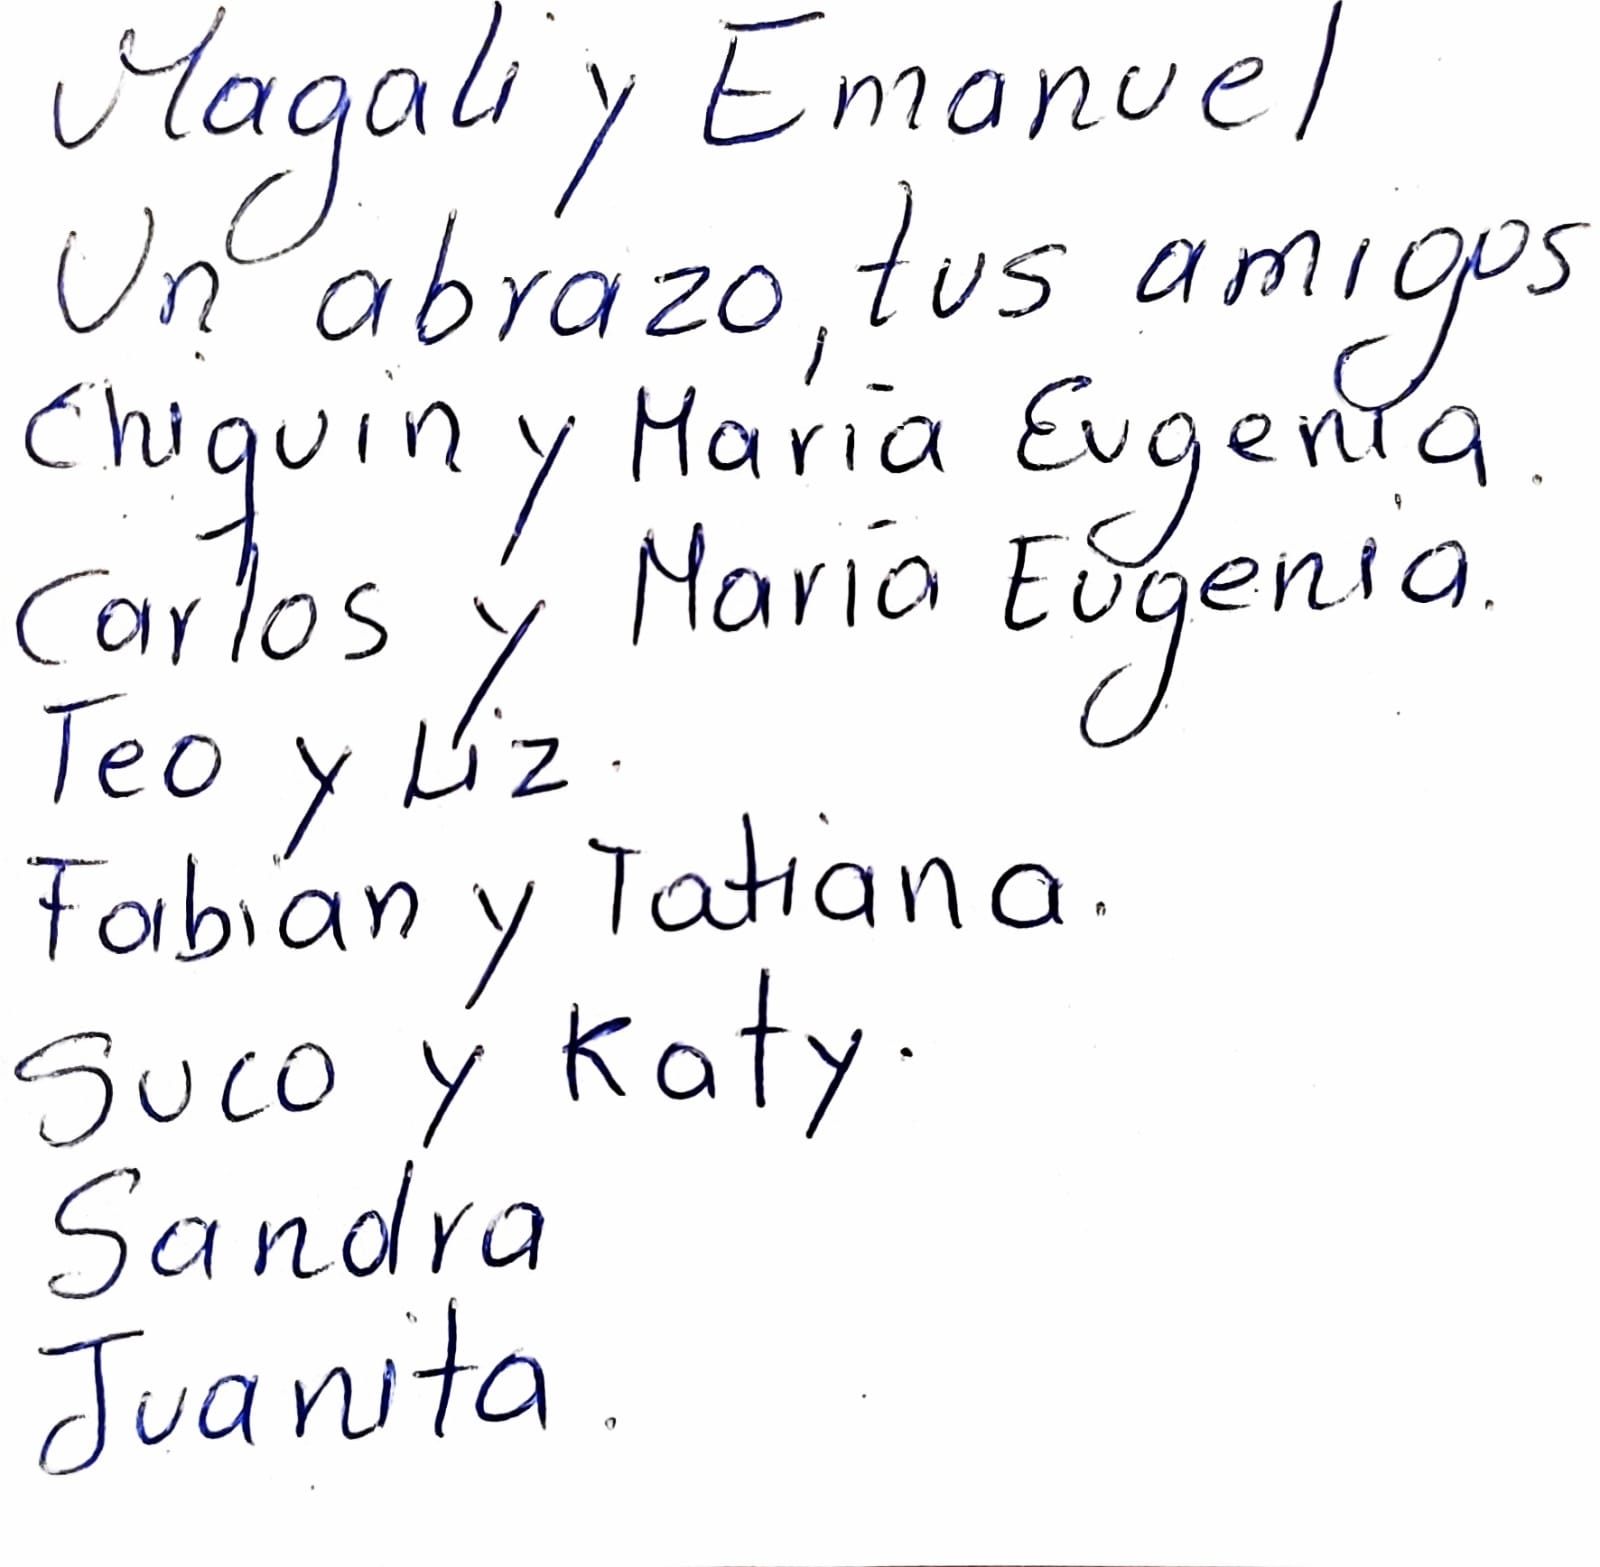 Magali y Emanuel
Un abrazo, tus amigos
Chiquin y María Eugenia.
Carlos y María Eugenia.
Teo y Liz.
Fabian y Tatiana.
Suco y Katy.
Sandra
Juanita.